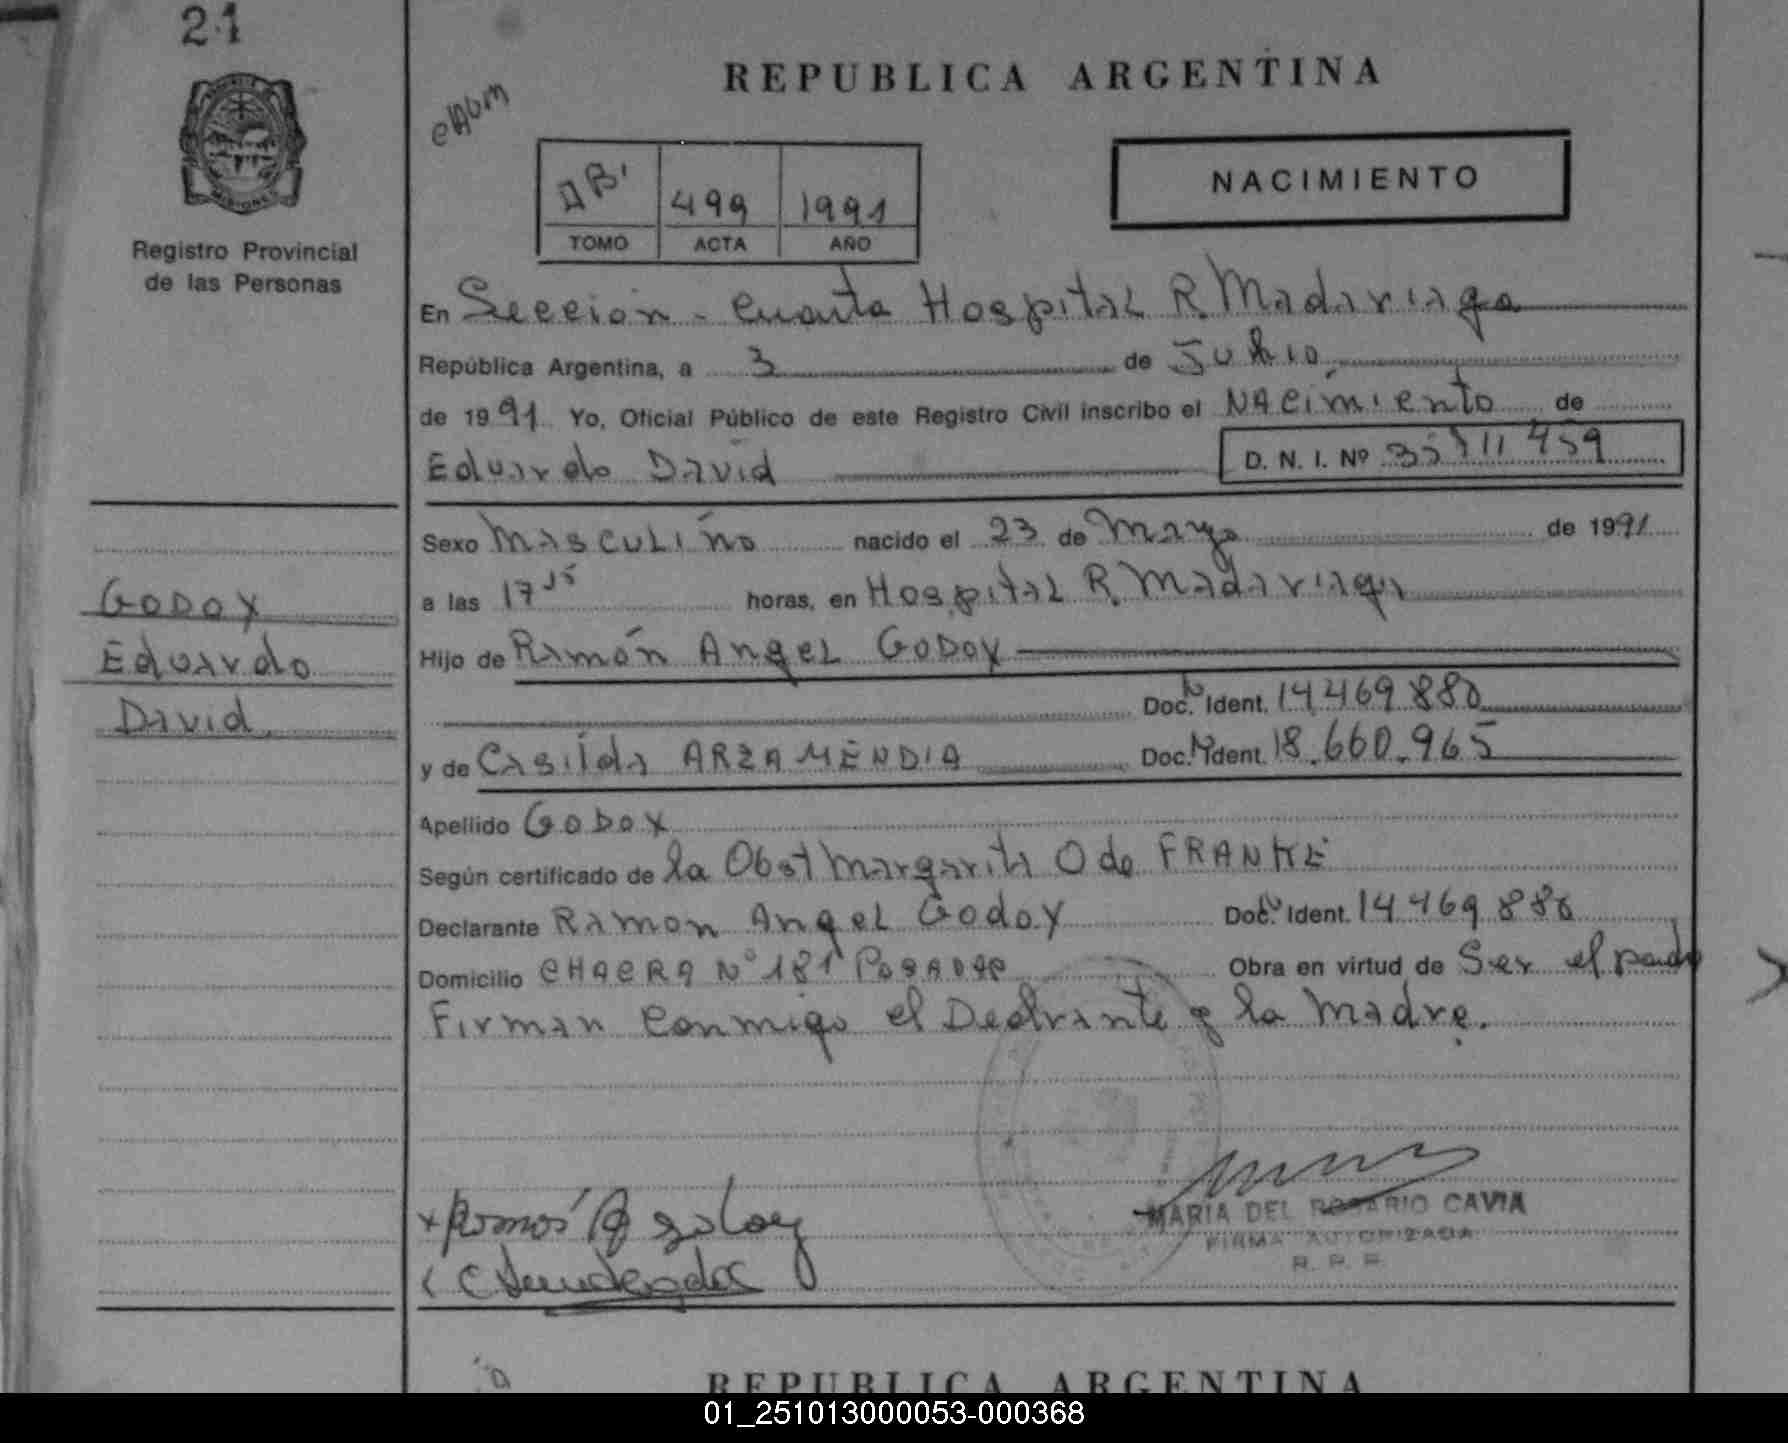 21
REPUBLICA ARGENTINA
MISIONES
499 1991
TOMO ACTA AÑO
NACIMIENTO
Registro Provincial
de las Personas
En Sección - Cuarta Hospital R. Madariaga
República Argentina, a 3 de Julio
de 1991 Yo, Oficial Público de este Registro Civil inscribo el NAcimiento de
Eduardo David D. N. I. Nº
Sexo Masculino nacido el 23 de Mayo de 1991
a las 17 15 horas, en Hospital R. Madariaga
GODOY
Eduardo
David
Hijo de Ramón Angel GODOY
Doc. Ident. 14.469.880
y de Casilda ARZAMENDIA Doc. Ident. 18.660.965
Apellido GODOY
Según certificado de la Obst Margarita O de FRANKE
Declarante Ramon Angel Godoy Doc. Ident. 14.469.880
Domicilio CHACRA Nº 181 POSADAS Obra en virtud de Ser el padre
Firman conmigo el Declarante y la Madre.
MARIA DEL ROSARIO CAVIA
FIRMA AUTORIZADA
R. P. P.
REPUBLICA ARGENTINA
01_251013000053-000368